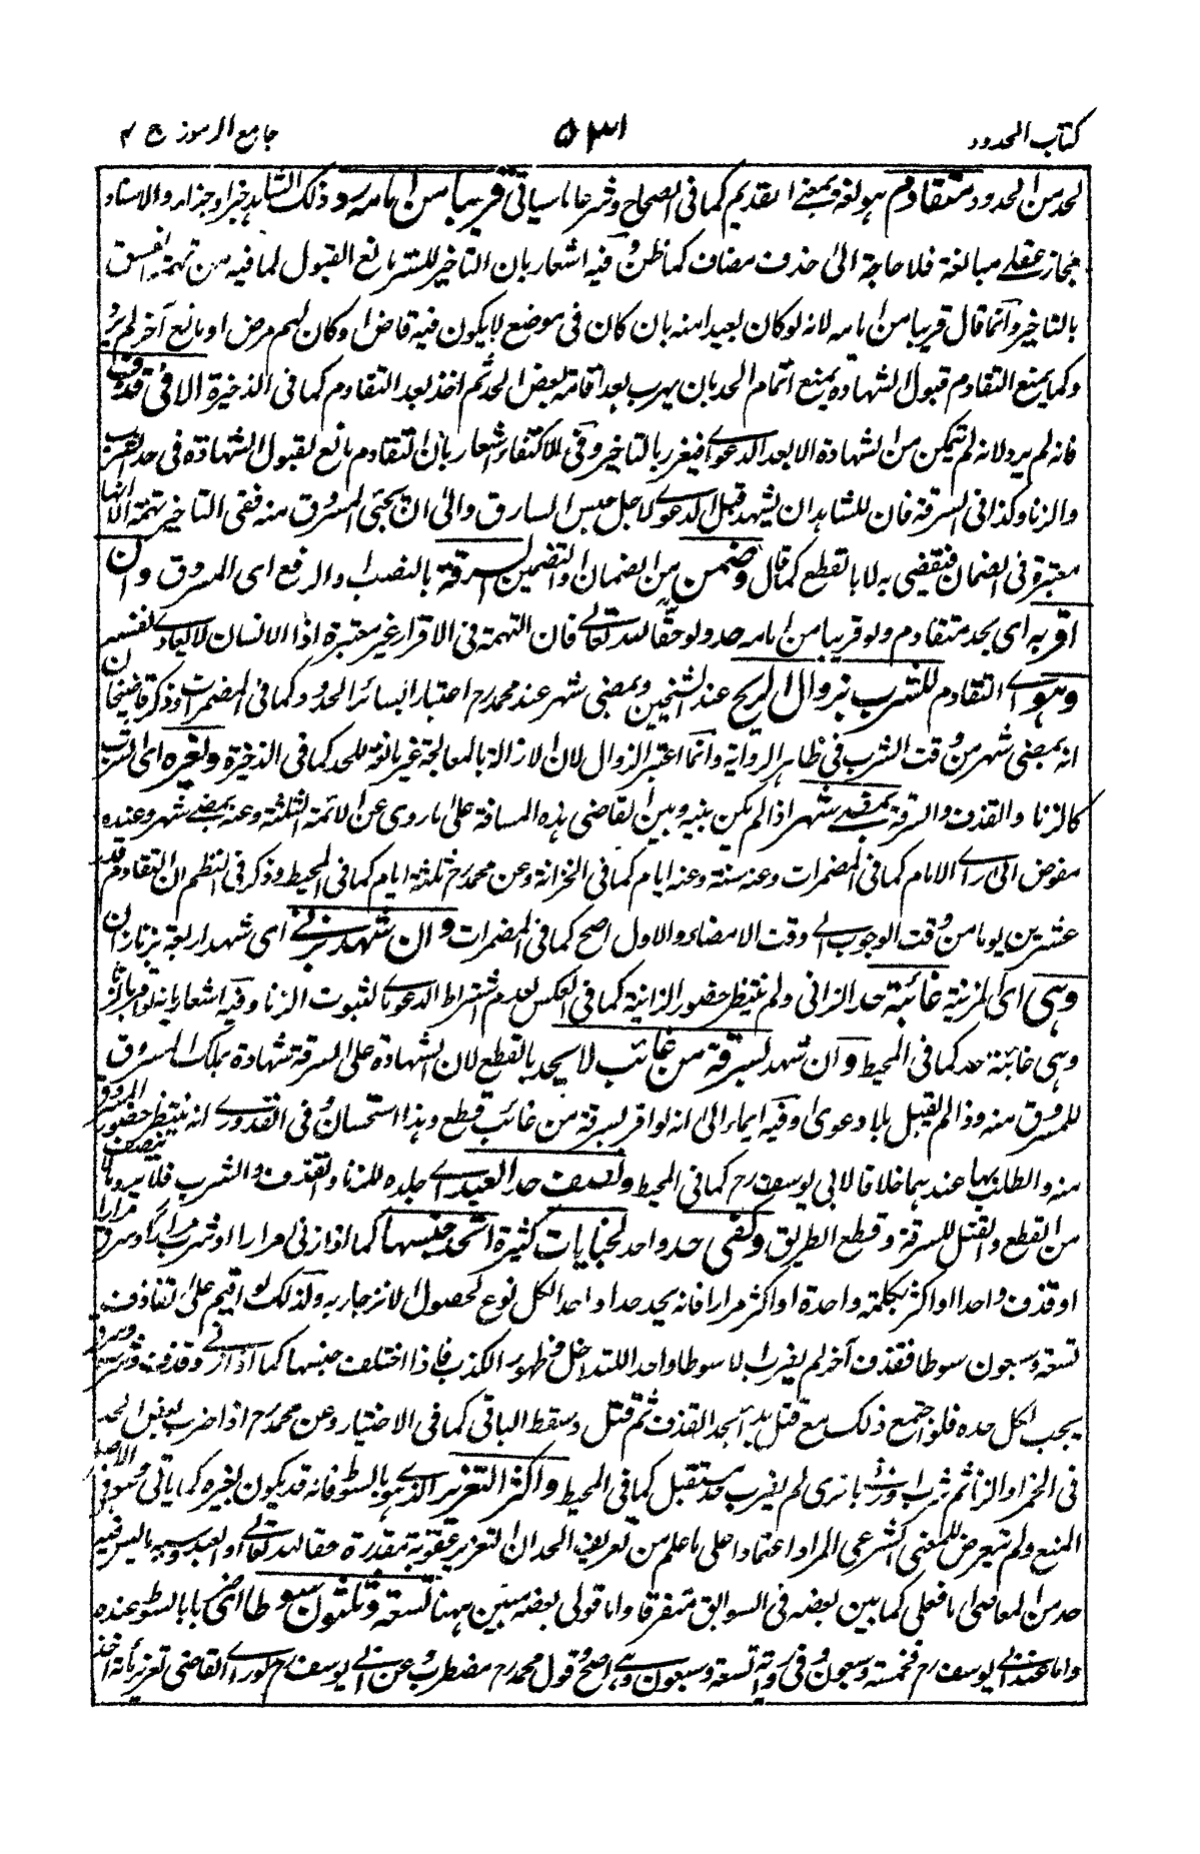 كتاب الحدود
٥٣١
جامع الرموز ج ٢
لحد من الحدود متقادم هو لغة بمعنى القديم كما فى الصحاح وشرعا ما سياتى قريبا من امامه رد وذلك الشاهد خبر او جزاء والاسناد
مجاز عقلى مبالغة فلا حاجة الى حذف مضاف كما ظن وفيه اشعار بان التاخير للستر مانع القبول لما فيه من تهمة الفسق
بالتاخير وانما قال قريبا من امامه لانه لو كان بعيدا منه بان كان فى موضع لا يكون فيه قاض او كان لهم مرض او مانع آخر لم يرد
وكما يمنع التقادم قبول الشهادة يمنع اتمام الحد بان يهرب بعد اقامة بعض الحد ثم اخذ بعد التقادم كما فى الذخيرة الا فى قذف
فانه لم يرد لانه لم يتمكن من الشهادة الا بعد الدعوى فيغرر بالتاخير وفى الاكتفاء اشعار بان التقادم مانع لقبول الشهادة فى حد الشرب
والزنا وكذا فى السرقة فان للشاهد ان يشهد قبل الدعوى لاجل حبس السارق والى ان يجئ المسروق منه ففى التاخير تهمة الا انها
معتبرة فى الضمان فتقضى به لا بالقطع كما قال وضمن من الضمان او التضمين السرقة بالنصب او الرفع اى المسروق وان
اقر به اى بحد متقادم ولو قريبا من امامه حد ولو حقا لله تعالى فان التهمة فى الاقرار غير معتبرة اذا الانسان لا يعادى نفسه
وهو اى التقادم للشرب بزوال الريح عند الشيخين وبمضى شهر عند محمد رح اعتبارا بسائر الحدود كما فى المضمرات وذكر قاضيخان
انه بمضى شهر من وقت الشرب فى ظاهر الرواية وانما اعتبر الزوال لان الازالة بالمعالجة غير مانعة للحد كما فى الذخيرة ولغيره اى الشرب
كالزنا والقذف والسرقة بمضى شهر اذا لم يكن بينه وبين القاضى هذه المسافة على ما روى عن الائمة الثلثة وعنه بمضى شهر وعنده
مفوض الى راى الامام كما فى المضمرات وعنه سنة وعنه ايام كما فى الخزانة وعن محمد رح ثلثة ايام كما فى المحيط وذكر فى النظم ان التقادم قدر
عشرين يوما من وقت الوجوب الى وقت الامضاء والاول اصح كما فى المضمرات وان شهد بزنى اى شهد اربعة بزنا زان
وهى اى المزنية غائبة حد الزانى ولم ينتظر حضور الزانية كما فى العكس لعدم اشتراط الدعوى لثبوت الزنا وفيه اشعار بانه لو اقر بالزنا
وهى غائبة حد كما فى المحيط وان شهد لسرقة من غائب لا يحد بالقطع لان الشهادة على السرقة شهادة بملك المسروق
للمسروق منه وذا لم يقبل بلا دعوى وفيه ايماء الى انه لو اقر بسرقة من غائب قطع وهذا استحسان وفى القدورى انه ينتظر حضور المسروق
منه والطلب بها عندهما خلافا لابى يوسف رح كما فى المحيط ونصف حد العبد اى جلده للزنا والقذف والشرب فلا يرد ما لا ينصف
من القطع والقتل للسرقة وقطع الطريق وكفى حد واحد لجنايات كثيرة اتحد جنسها كما اذا زنى مرارا او شرب مرارا او سرق مرارا
او قذف واحدا او اكثر بكلمة واحدة او اكثر مرارا فانه يحد حدا واحدا لكل نوع لحصول الانزجار به ولذلك لو اقيم على القاذف
تسعة وسبعون سوطا فقذف آخر لم يضرب الا سوطا واحدا للتداخل وظهور الكذب فاذا اختلف جنسها كما اذا زنى وقذف وشرب وسرق
يجب لكل حده فلو اجتمع ذلك مع قتل بدأ بحد القذف ثم قتل وسقط الباقى كما فى الاختيار وعن محمد رح اذا ضرب بعض الحد
فى الخمر او الزنا ثم شرب او زنى باخرى لم يضرب حد مستقبل كما فى المحيط واكثر التعزير الذى هو بالسوط فانه قد يكون لغيره كما ياتى وهو فى الاصل
المنع ولم يتعرض للمعنى الشرعى المراد اعتمادا على ما علم من تعريف الحد ان التعزير عقوبة مقدرة حقا لله تعالى او العبد وسببه ما ليس فيه
حد من المعاصى اما فعلى كما بين بعضه فى السوابق متفرقا واما قولى بعضه مبين ههنا تسعة وثلثون سوطا اى ضربا بالسوط عنده
واما عند ابى يوسف رح فخمسة وسبعون وفى رواية تسعة وسبعون وهى اصح وقول محمد رح مضطرب وعن ابى يوسف رح لو راى القاضى تعزير مائة اخذ